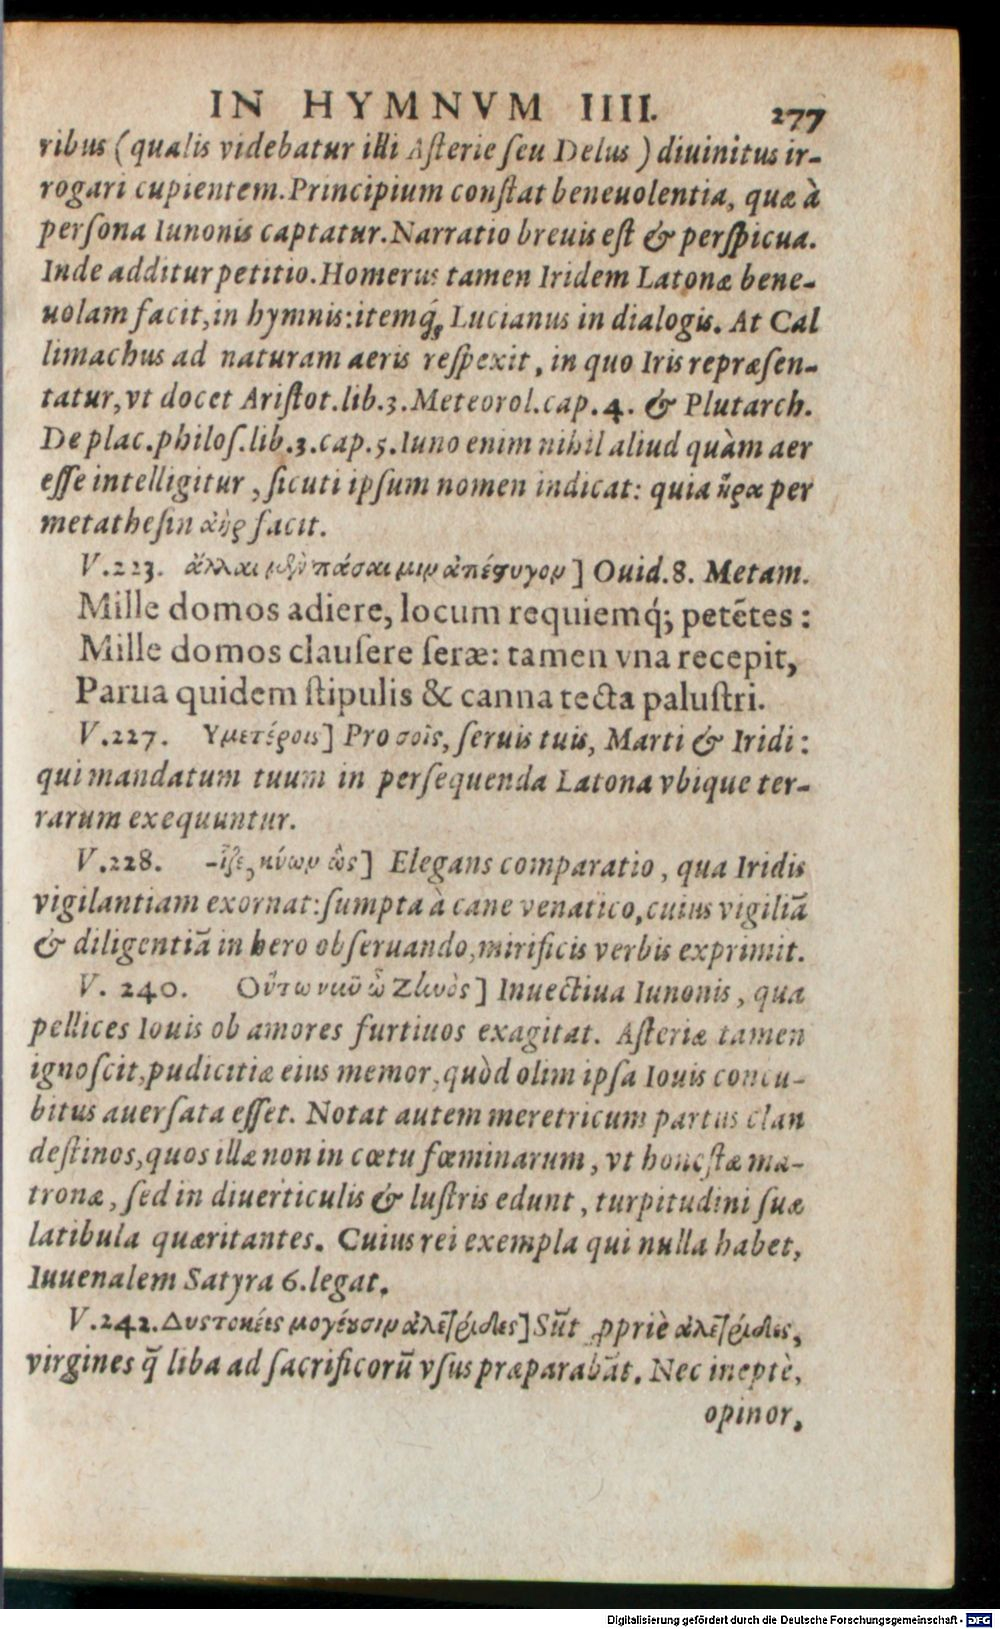 IN HYMNVM IIII. 277
ribus (qualis videbatur illi Asterie seu Delus) diuinitus ir-
rogari cupientem. Principium constat beneuolentia, quæ à
persona Iunonis captatur. Narratio breuis est & perspicua.
Inde additur petitio. Homerus tamen Iridem Latonæ bene-
uolam facit, in hymnis: itemq́; Lucianus in dialogis. At Cal
limachus ad naturam aeris respexit, in quo Iris repræsen-
tatur, vt docet Aristot. lib. 3. Meteorol. cap. 4. & Plutarch.
De plac. philos. lib. 3. cap. 5. Iuno enim nihil aliud quàm aer
esse intelligitur, sicuti ipsum nomen indicat: quia ἥρα per
metathesin ἀὴρ facit.
V. 223. ἄλλαι μὲν πάσαι μιν ἀπέφυγον] Ouid. 8. Metam.
Mille domos adiere, locum requiemq́; petẽtes:
Mille domos clausere seræ: tamen vna recepit,
Parua quidem stipulis & canna tecta palustri.
V. 227. Υμετέροις] Pro σοῖς, seruis tuis, Marti & Iridi:
qui mandatum tuum in persequenda Latona vbique ter-
rarum exequuntur.
V. 228. -ἷζε, κύων ὣς] Elegans comparatio, qua Iridis
vigilantiam exornat: sumpta à cane venatico, cuius vigiliã
& diligentiã in hero obseruando, mirificis verbis exprimit.
V. 240. Οὕτω νιῦ ὦ Ζηνὸς] Inuectiua Iunonis, qua
pellices Iouis ob amores furtiuos exagitat. Asteriæ tamen
ignoscit, pudicitiæ eius memor, quòd olim ipsa Iouis concu-
bitus auersata esset. Notat autem meretricum partus clan
destinos, quos illæ non in cœtu fœminarum, vt honestæ ma-
tronæ, sed in diuerticulis & lustris edunt, turpitudini suæ
latibula quæritantes. Cuius rei exempla qui nulla habet,
Iuuenalem Satyra 6. legat.
V. 242. Δυστοκέες μογέουσιν ἀλετρίδες] Sũt ꝓpriè ἀλετρίδες,
virgines q̃ liba ad sacrificorũ vsus præparabãt. Nec ineptè,
opinor,
Digitalisierung gefördert durch die Deutsche Forschungsgemeinschaft - DFG